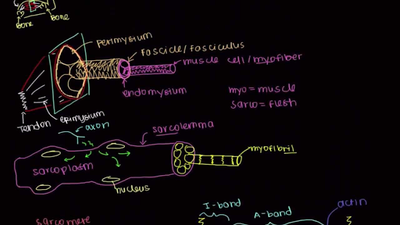 Bone Bone
perimysium
fascicle/fasciculus
muscle cell/myofiber
endomysium
myo = muscle
sarco = flesh
Tendon
epimysium
axon
sarcolemma
myofibril
sarcoplasm
nucleus
I-band
A-band
actin
sarcomere